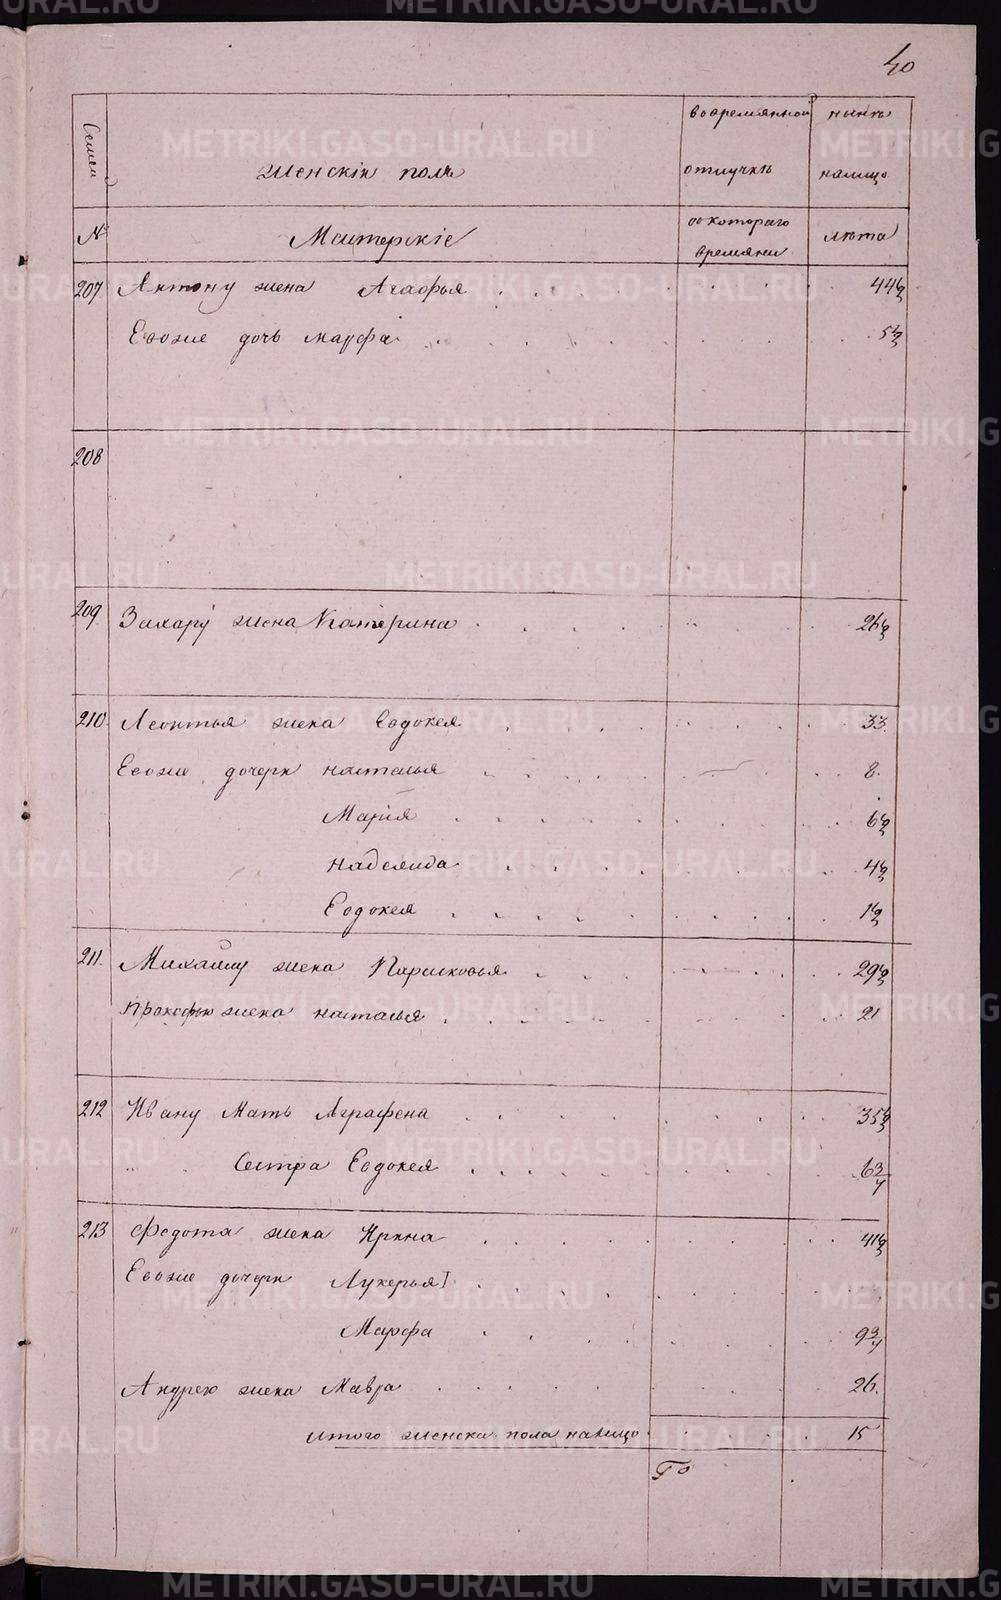 40
Семей
женскій полъ
вовремянной
отлучкѣ
нынѣ
налицо
№
Мастерскіе
со котораго
времяни
лѣта
207 Антону жена Агафья 44½
Евоже дочь марфа 5½
208
209 Захару жена Катерина 26½
210 Леонтья жена Евдокея 33
Евоже дочери наталья 8
Марія 6½
надежда 4½
Евдокея 1½
211 Михайлу жена Парасковья 29½
Прокофью жена наталья 21
212 Ивану Мать Аграфена 35½
Сестра Евдокея 6¾
213 Федота жена Ирина 41½
Евоже дочери Лукерья I
Марфа 9¾
Андрею жена Мавра 26
итого женска пола налицо 15
METRIKI.GASO-URAL.RU